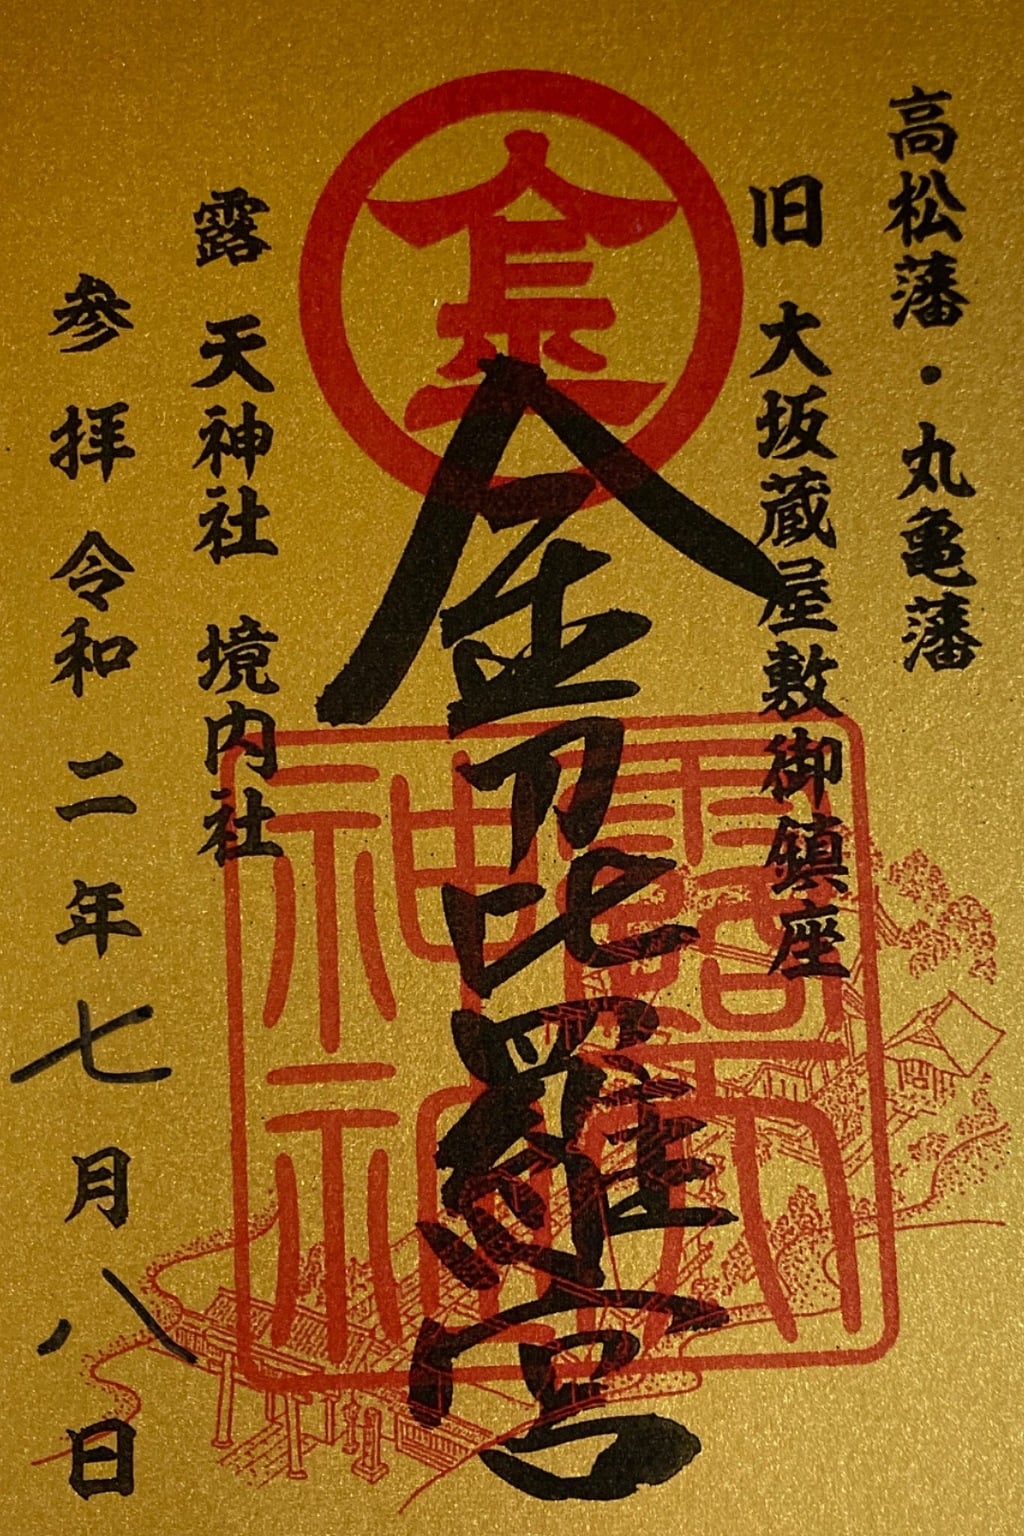 高松藩・丸亀藩
旧 大坂蔵屋敷御鎮座
金刀比羅宮
露 天神社 境内社
参拝 令和二年七月八日